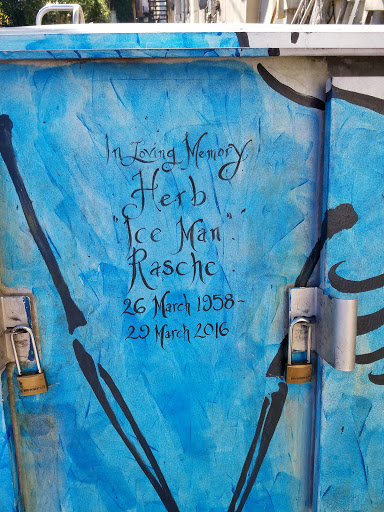 In Loving Memory
Herb
"Ice Man"
Rasche
26 March 1958-
29 March 2016